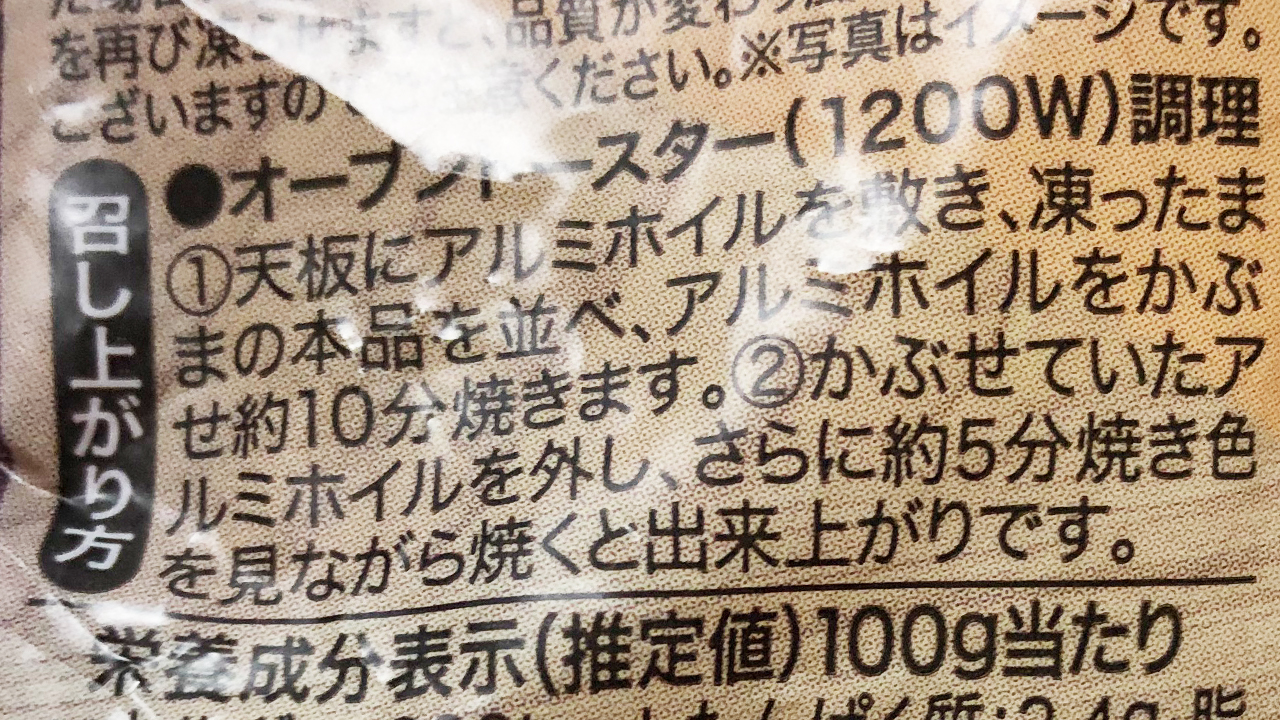 を再び凍
品質が変わ
ください。※写真はイメージです。
ございますの
召し上がり方
●オーブントースター(1200W)調理
①天板にアルミホイルを敷き、凍ったま
まの本品を並べ、アルミホイルをかぶ
せ約10分焼きます。②かぶせていたア
ルミホイルを外し、さらに約5分焼き色
を見ながら焼くと出来上がりです。
栄養成分表示(推定値)100g当たり
たんぱく質:2.4g 脂